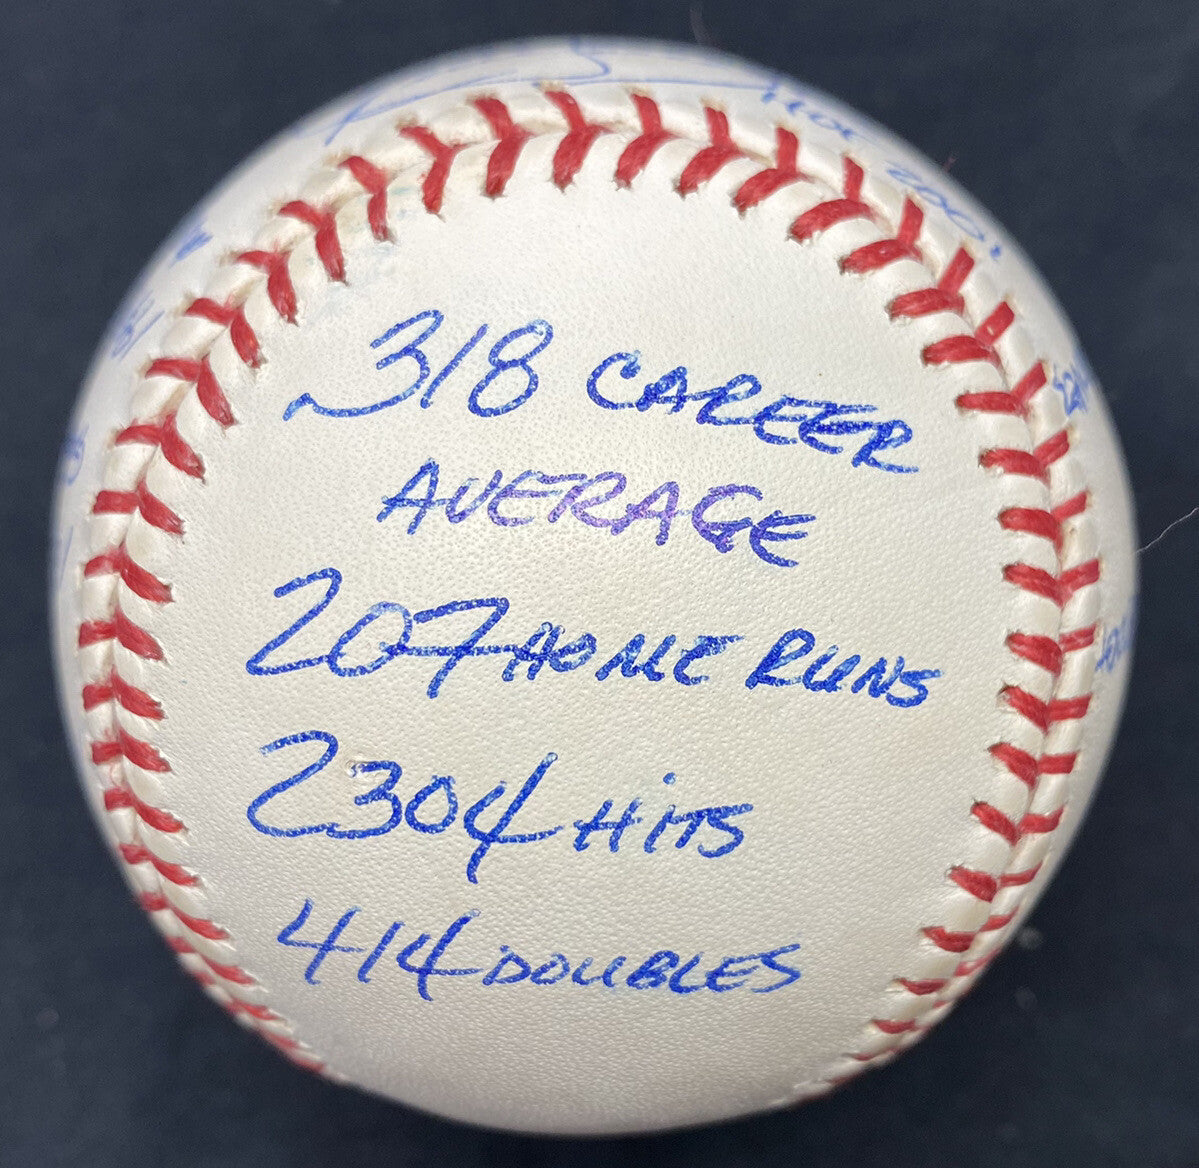 HOF 2001
.318 CAREER
AVERAGE
207 HOME RUNS
2304 HITS
414 DOUBLES